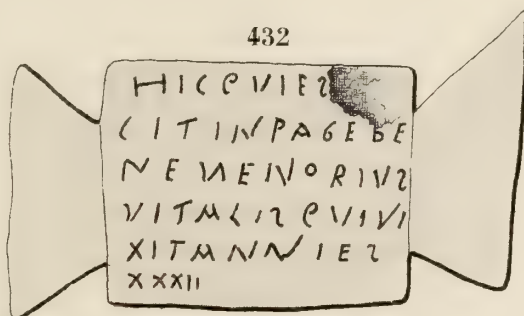 432
HICQVIES
CITINPAGEBE
NEMEMORIVS
VITALISQVIVI
XITANNIES
XXXII